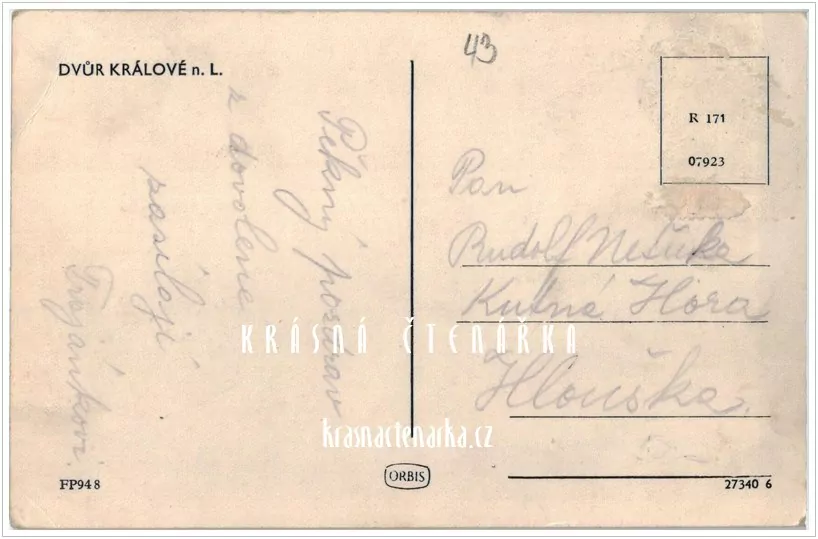 43
DVŮR KRÁLOVÉ n. L.
Pěkný pozdrav
z dovolené
zasílají
Trojánkovi.
R 171
07923
Pan
Rudolf
Kutná Hora
Hlouška
KRÁSNÁ ČTENÁŘKA
krasnactenarka.cz
FP948
ORBIS
27340 6